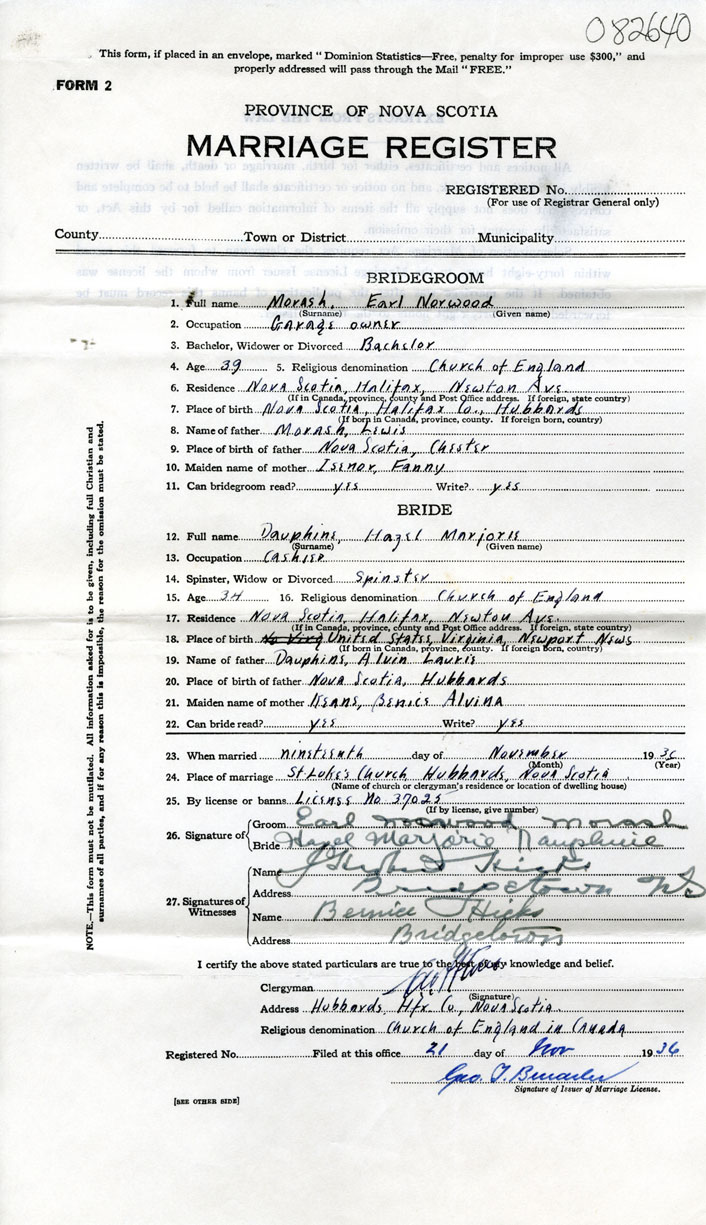 082640
This form, if placed in an envelope, marked "Dominion Statistics—Free, penalty for improper use $300," and
properly addressed will pass through the Mail "FREE."
FORM 2
PROVINCE OF NOVA SCOTIA
MARRIAGE REGISTER
REGISTERED No.
(For use of Registrar General only)
County Town or District Municipality
BRIDEGROOM
1. Full name Morash, Earl Norwood
(Surname) (Given name)
2. Occupation Garage owner
3. Bachelor, Widower or Divorced Bachelor
4. Age 39 5. Religious denomination Church of England
6. Residence Nova Scotia, Halifax, Newton Ave.
(If in Canada, province, county and Post Office address. If foreign, state country)
7. Place of birth Nova Scotia, Halifax Co., Hubbards
(If born in Canada, province, county. If foreign born, country)
8. Name of father Morash, Lewis
9. Place of birth of father Nova Scotia, Chester
10. Maiden name of mother Isenor, Fanny
11. Can bridegroom read? yes Write? yes
BRIDE
12. Full name Dauphine, Hazel Marjorie
(Surname) (Given name)
13. Occupation Cashier
14. Spinster, Widow or Divorced Spinster
15. Age 34 16. Religious denomination Church of England
17. Residence Nova Scotia, Halifax, Newton Ave.
(If in Canada, province, county and Post Office address. If foreign, state country)
18. Place of birth United States, Virginia, Newport News
(If born in Canada, province, county. If foreign born, country)
19. Name of father Dauphine, Alvin Lauris
20. Place of birth of father Nova Scotia, Hubbards
21. Maiden name of mother Keans, Benice Alvina
22. Can bride read? yes Write? yes
23. When married nineteenth day of November 1936
(Month) (Year)
24. Place of marriage St Luke's Church Hubbards, Nova Scotia
(Name of church or clergyman's residence or location of dwelling house)
25. By license or banns License No 37025
(If by license, give number)
26. Signature of Groom Earl Norwood Morash
Bride Hazel Marjorie Dauphinie
27. Signatures of Witnesses
Name Hicks
Address Bridgetown NS
Name Bernice Hicks
Address Bridgetown
I certify the above stated particulars are true to the best of my knowledge and belief.
Clergyman
(Signature)
Address Hubbards, Hfx Co., Nova Scotia
Religious denomination Church of England in Canada
Registered No. Filed at this office 21 day of Nov 1936
Geo. T.
Signature of Issuer of Marriage License.
[SEE OTHER SIDE]
NOTE.—This form must not be mutilated. All information asked for is to be given, including full Christian and
surnames of all parties, and if for any reason this is impossible, the reason for the omission must be stated.